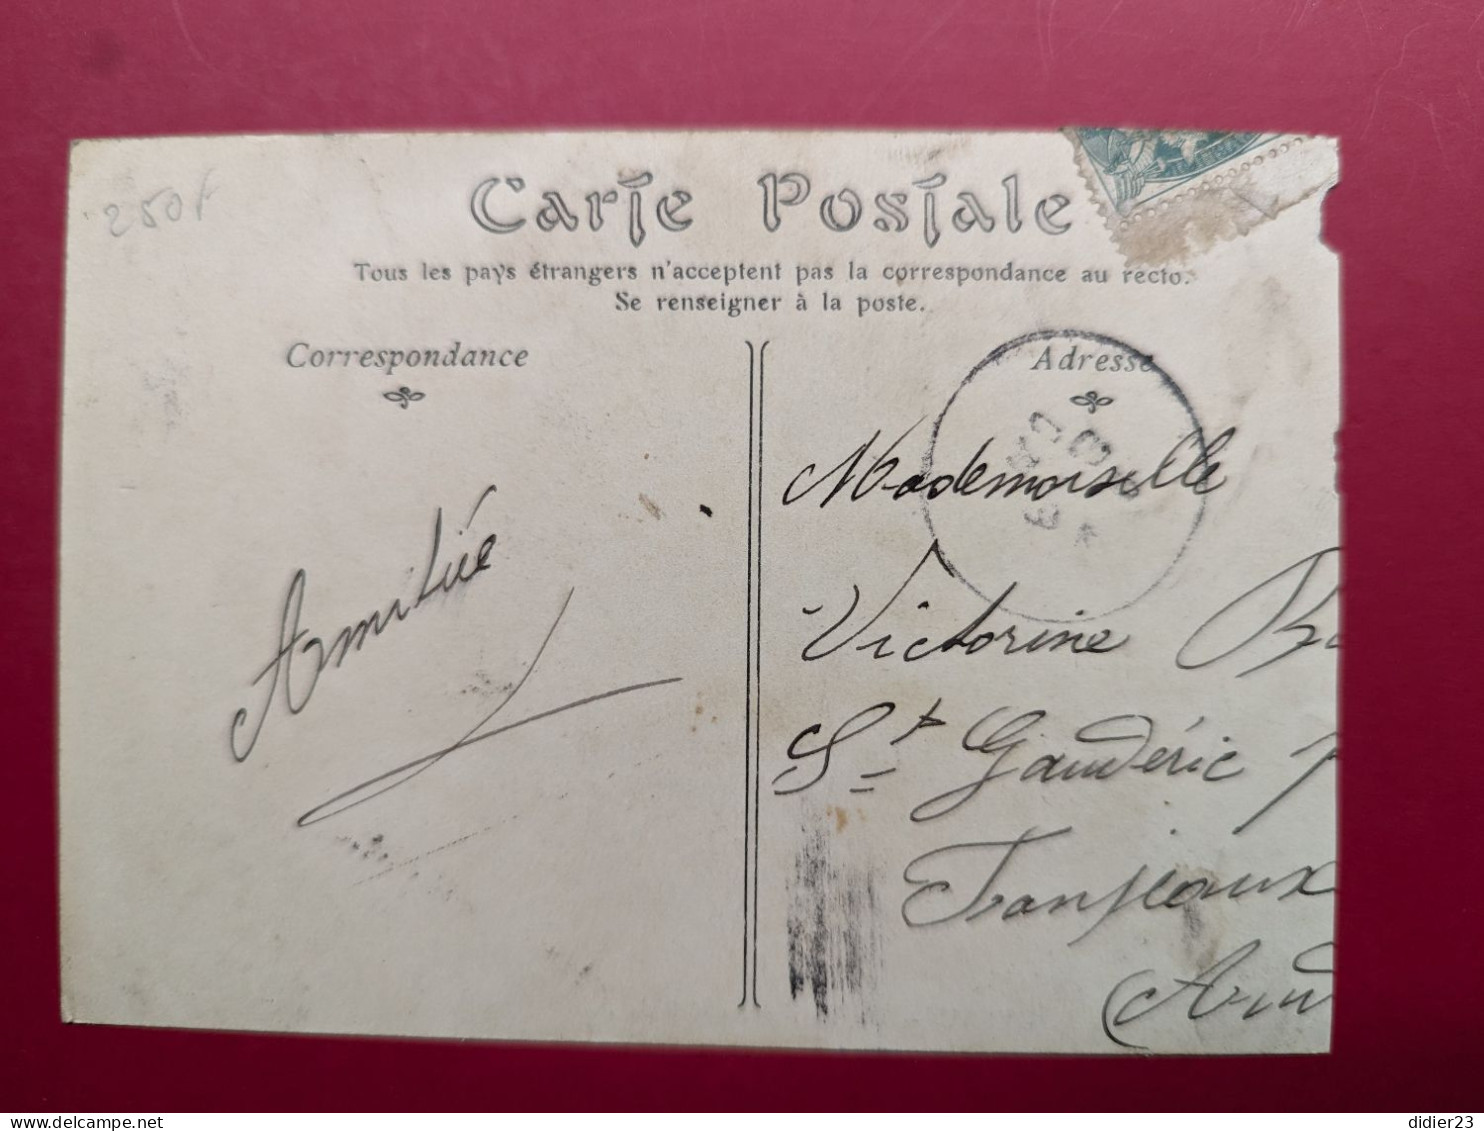 250f
Carte Postale
Tous les pays étrangers n'acceptent pas la correspondance au recto.
Se renseigner à la poste.
Correspondance
Adresse
Amitié
Mademoiselle
Victorine
St Gaudéric
Fanjeaux
Aud
delcampe.net
didier23